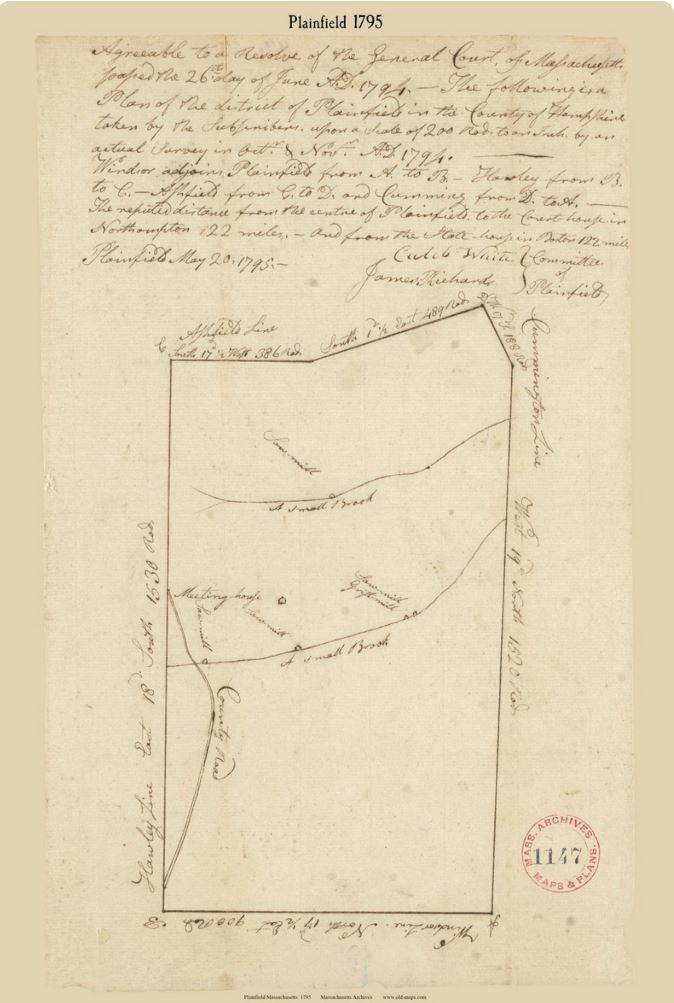 Plainfield 1795
Agreeable to a Resolve of the General Court, of Massachusetts
passed the 26th day of June A.D. 1794. — The following is a
Plan of the district of Plainfield in the County of Hampshire
taken by the Subscribers. upon a Scale of 200 Rods to an Inch. by an
actual Survey in Octr. & Novr. A.D. 1794.
Windsor adjoins Plainfield from A. to B. — Hawley from B.
to C. — Ashfield from C. to D. and Cumming from D. to A. —
The reputed distance from the centre of Plainfield to the Court house in
Northampton 22 miles. — And from the State house in Boston 122 mile
Plainfield May 20. 1795. —
Caleb White
James Richards
Committee
of
Plainfield
Ashfield Line
C
South 17 ½ West 386 Rod.
South 1d ½ East 489 Rod
188 Rod
Cummington Line
West 19d North 1520 Rod.
Saw-mill
A small Brook
Meeting house
Saw-mill
Saw-mill
Saw-mill
Grist-mill
A small Brook
County Road
Hawley Line East 18d South 1630 Rod.
B
Windsor Line. North 17 ½ East 900 Rod.
A
MASS. ARCHIVES
1147
MAPS & PLANS.
Plainfield Massachusetts 1795 Massachusetts Archives www.old-maps.com